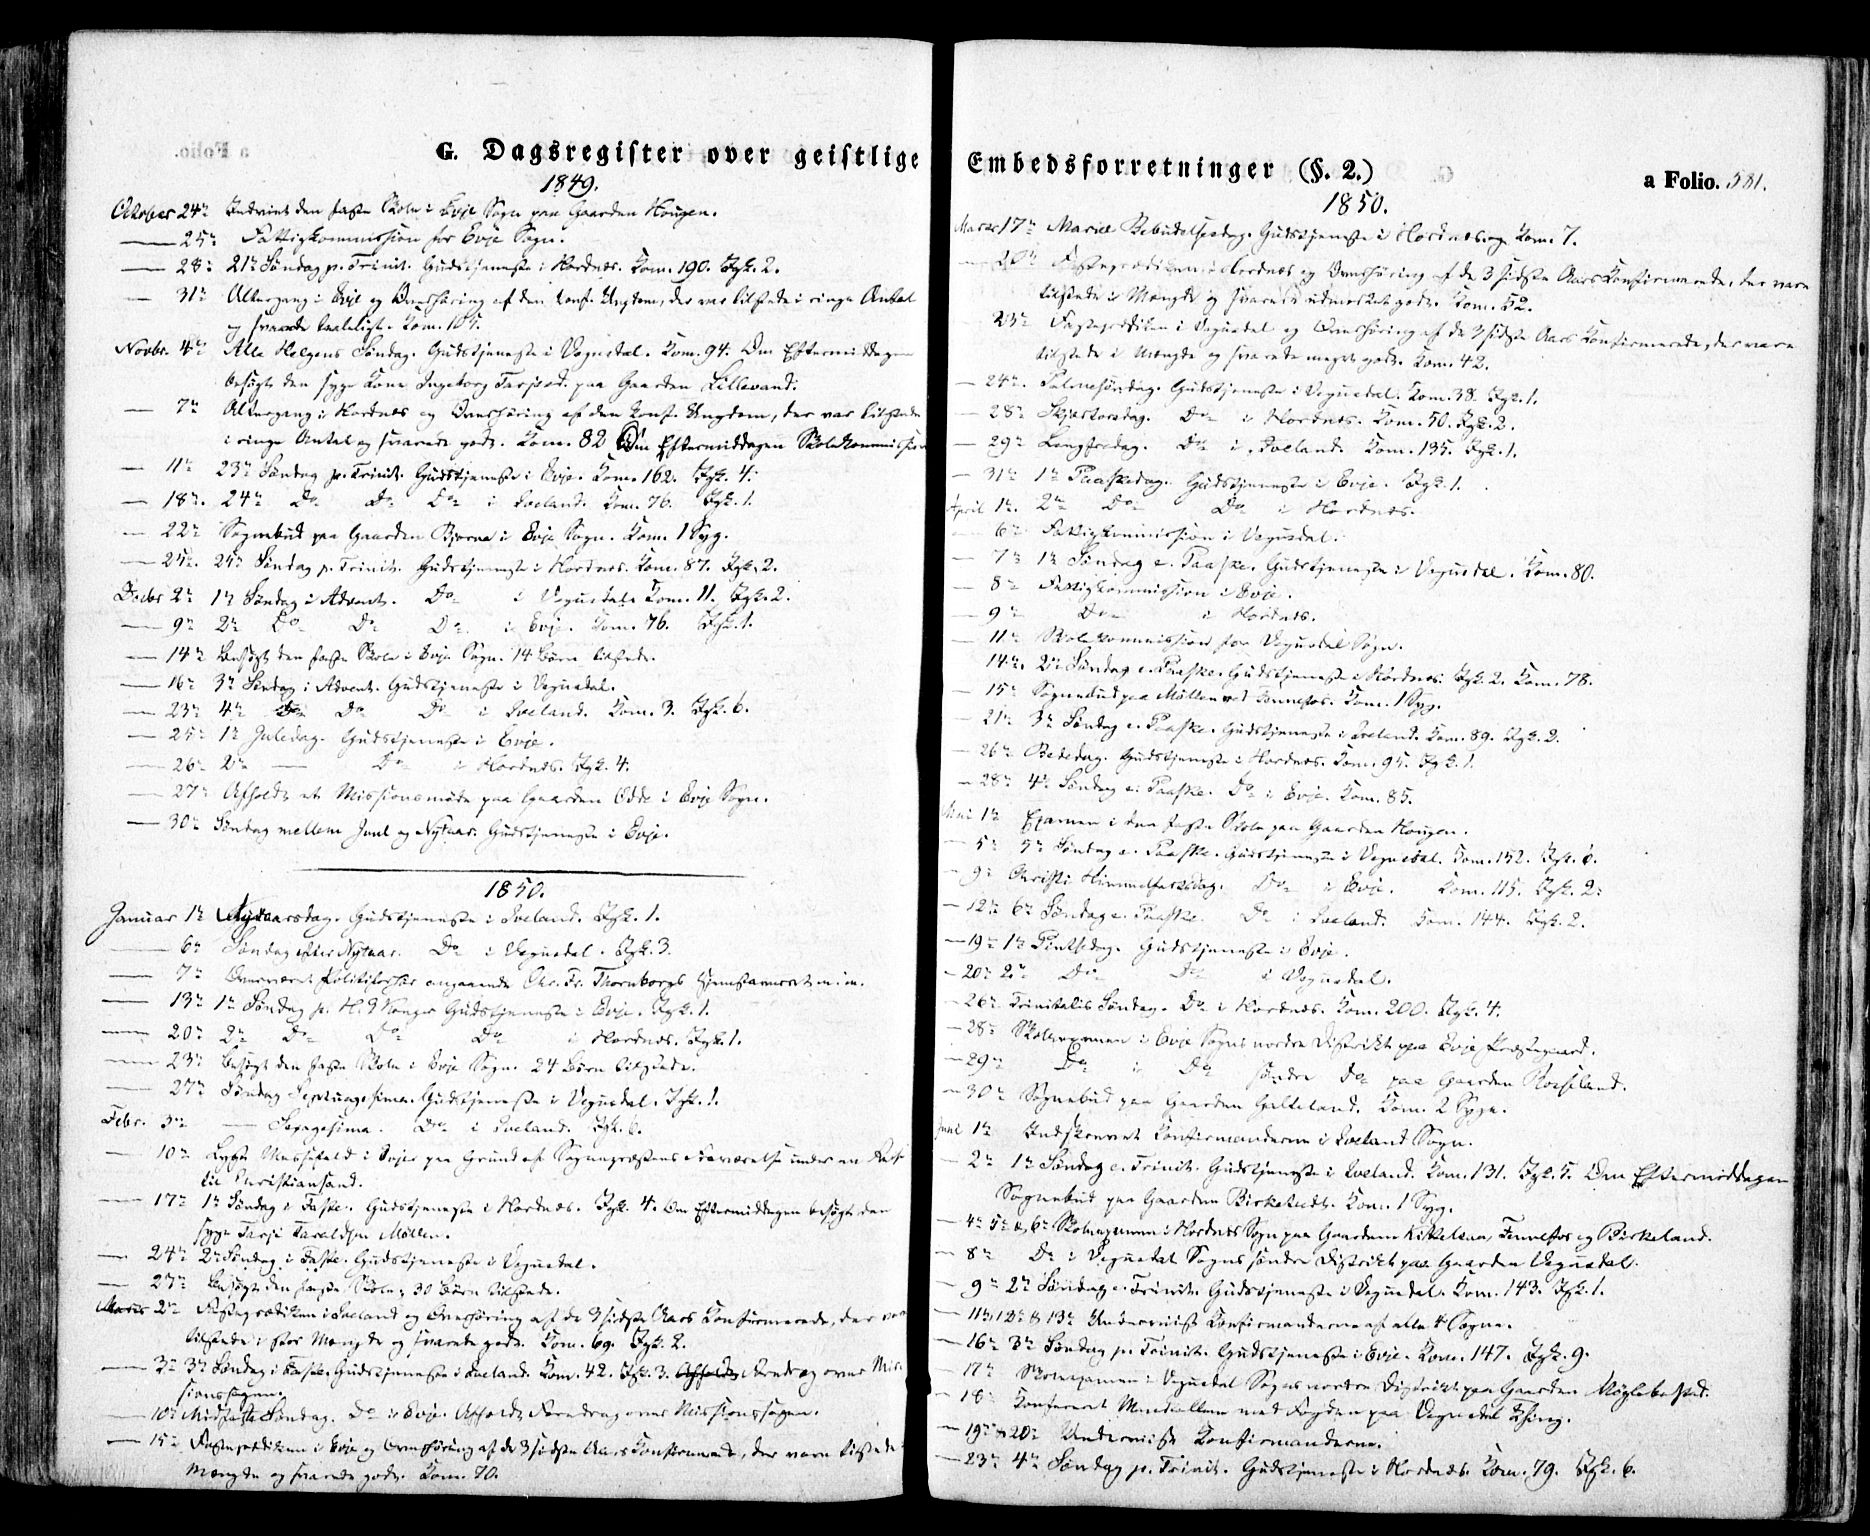 G. Dagsregister over geistlige
1849.
October 24de Indviet den faste Skole i Evje Sogn paa Gaarden Hougen.
25de Fattigkommission for Evje Sogn.
28de 21de Søndag p. Trinit. Gudstjeneste i Hordnes. Kom. 190. Igk. 2.
31de Altergang i Evje og Overhøring af den konf. Ungdom, der var tilstede i ringe Antal
og svarede taaleligt. Kom. 105.
Novbr. 4de Alle Helgens Søndag. Gudstjeneste i Vegusdal. Kom. 94. Om Eftermiddagen
besøgt den syge Kone Ingeborg Tarjesd. paa Gaarden Lillevand.
7de Altergang i Hordnes og Overhøring af den konf. Ungdom, der var tilstede
i ringe Antal og svarede godt. Kom. 82 Om Eftermiddagen Skolekommission
11te 23de Søndag p. Trinit. Gudstjeneste i Evje. Kom. 162. Igk. 4.
18de 24de Do Do Do i Iveland. Kom. 76. Igk. 1.
22de Sognebud paa Gaarden Bjorva i Evje Sogn. Kom. 1 Syg.
25de 25de Søndag p. Trinit. Gudstjeneste i Hordnes. Kom. 87. Igk. 2.
Decbr 2de 1te Søndag i Advent. Do i Vegusdal. Kom. 11. Igk. 2.
9de 2de Do Do Do i Evje. Kom. 76. Igk. 1.
14de Besøgt den faste Skole i Evje Sogn. 14 Børn tilstede.
16de 3de Søndag i Advent. Gudstjeneste i Vegusdal.
23de 4de Do Do Do i Iveland. Kom. 3. Igk. 6.
25de 1te Juledag. Gudstjeneste i Evje.
26de 2de — Do i Hordnes. Igk. 4.
27de Afholdt et Missionsmøde paa Gaarden Odde i Evje Sogn.
30te Søndag mellem Juul og Nytaar. Gudstjeneste i Evje.
1850.
Januar 1te Nytaarsdag. Gudstjeneste i Iveland. Igk. 1.
6te Søndag efter Nytaar. Do i Vegusdal. Igk. 3.
7de Overværet Politiforhør angaaende Chr. Fr. Thornborgs Hjemstavnsret m. m.
13de 1te Søndag p. H. 3 Konger Gudstjeneste i Evje. Igk. 1.
20de 2de Do Do Do i Hordnes. Igk. 1.
23de Besøgt den faste Skole i Evje Sogn. 24 Børn tilstede.
27de Søndag Septuagesima. Gudstjeneste i Vegusdal. Igk. 1.
Febr. 3de — Sexagesima. Do i Iveland. Igk. 6.
10de Lyst Messefald i Evje paa Grund af Sognepræstens Fraværelse under en Reise
til Christiansand.
17de 1te Søndag i Faste. Gudstjeneste i Hordnes. Igk. 4. Om Eftermiddagen besøgt den
syge Tarje Taraldsen Møllen.
24de 2de Søndag i Faste. Gudstjeneste i Vegusdal.
27de Besøgt den faste Skole; 30 Børn tilstede.
Marts 2de Fasteprædiken i Iveland og Overhøring af de 3 sidste Aars Konfirmerede, der vare
tilstede i stor Mængde og svarede godt. Kom. 69. Igk. 2.
3de 3de Søndag i Faste. Gudstjeneste i Iveland. Kom. 42. Igk. 3. Afholdt Foredrag over Mis-
sionssagen.
10de Midfaste Søndag. Do i Evje. Afholdt Foredrag over Missionssagen.
15de Fasteprædiken i Evje og Overhøring af de 3 sidste Aars Konfirmerede, der vare tilstede i
Mængde og svarede godt. Kom. 70.
Embedsforretninger (§. 2.)
a Folio. 581.
1850.
Marts 17de Mariæ Bebudelsesdag. Gudstjeneste i Hordnes Kom. 7.
20de Fasteprædiken i Hordnes og Overhøring af de 3 sidste Aars Konfirmerede, der vare
tilstede i Mængde og svarede udmærket godt. Kom. 52.
23de Fasteprædiken i Vegusdal og Overhøring af de 3 sidste Aars Konfirmerede, der vare
tilstede i Mængde og svarede meget godt. Kom. 42.
24de Palmesøndag. Gudstjeneste i Vegusdal. Kom. 38. Igk. 1.
28de Skjærtorsdag. Do i Hordnes. Kom. 50. Igk. 2.
29de Langfredag. Do i Iveland. Kom. 135. Igk. 1.
31te 1te Paaskedag. Gudstjeneste i Evje. Igk. 1.
April 1te 2de Do Do i Hordnes.
6te Fattigkommission i Vegusdal.
7de 1te Søndag e. Paaske. Gudstjeneste i Vegusdal. Kom. 80.
8de Fattigkommission i Evje.
9de Do i Hordnes.
11te Skolekommission for Vegusdal Sogn.
14de 2de Søndag e. Paaske. Gudstjeneste i Hordnes. Igk. 2. Kom. 78.
15de Sognebud paa Møllen ved Fennefos. Kom. 1 Syg.
21de 3de Søndag e. Paaske. Gudstjeneste i Iveland. Kom. 89. Igk. 2.
26de Bededag. Gudstjeneste i Hordnes. Kom. 95. Igk. 1.
28de 4de Søndag e. Paaske. Do i Evje. Kom. 85.
Mai 1te Examen i den faste Skole paa Gaarden Hougen.
5te 5te Søndag e. Paaske. Gudstjeneste i Vegusdal. Kom. 152. Igk. 6.
9de Christi Himmelfartsdag. Do i Evje. Kom. 115. Igk. 2.
12te 6te Søndag e. Paaske. Do i Iveland. Kom. 144. Igk. 2.
19de 1te Pintsedag. Gudstjeneste i Evje.
20de 2de Do Do i Vegusdal.
26de Trinitatis Søndag. Do i Hordnes. Kom. 200. Igk. 4.
28de Skoleexamen i Evje Sogns nordre Distrikt paa Evje Præstegaard.
29de Do i Do søndre Do paa Gaarden Rosseland.
30te Sognebud paa Gaarden Galteland. Kom. 2 Syge.
Juni 1te Indskrevet Konfirmanderne i Iveland Sogn.
2de 1te Søndag e. Trinit. Gudstjeneste i Iveland. Kom. 131. Igk. 5. Om Eftermiddagen
Sognebud paa Gaarden Birketvedt. Kom. 1 Syg.
4de 5te & 6te Skoleexamen i Hordnes Sogn paa Gaardene Kittelsaa, Fennefos og Birkeland.
8de Do i Vegusdal Sogns søndre Distrikt paa Gaarden Vegusdal.
9de 2de Søndag e. Trinit. Gudstjeneste i Vegusdal. Kom. 143. Igk. 1.
11te, 12te & 13de Underviist Konfirmanderne af alle 4 Sogne.
16de 3de Søndag p. Trinit. Gudstjeneste i Evje. Kom. 147. Igk. 9.
17de Skoleexamen i Vegusdal Sogns nordre Distrikt paa Gaarden Møglebostad.
18de Konfereret Mandtallene med Fogden paa Vegusdal Thing.
19de & 20de Underviist Konfirmanderne.
23de 4de Søndag p. Trinit. Gudstjeneste i Hordnes. Kom. 79. Igk. 6.